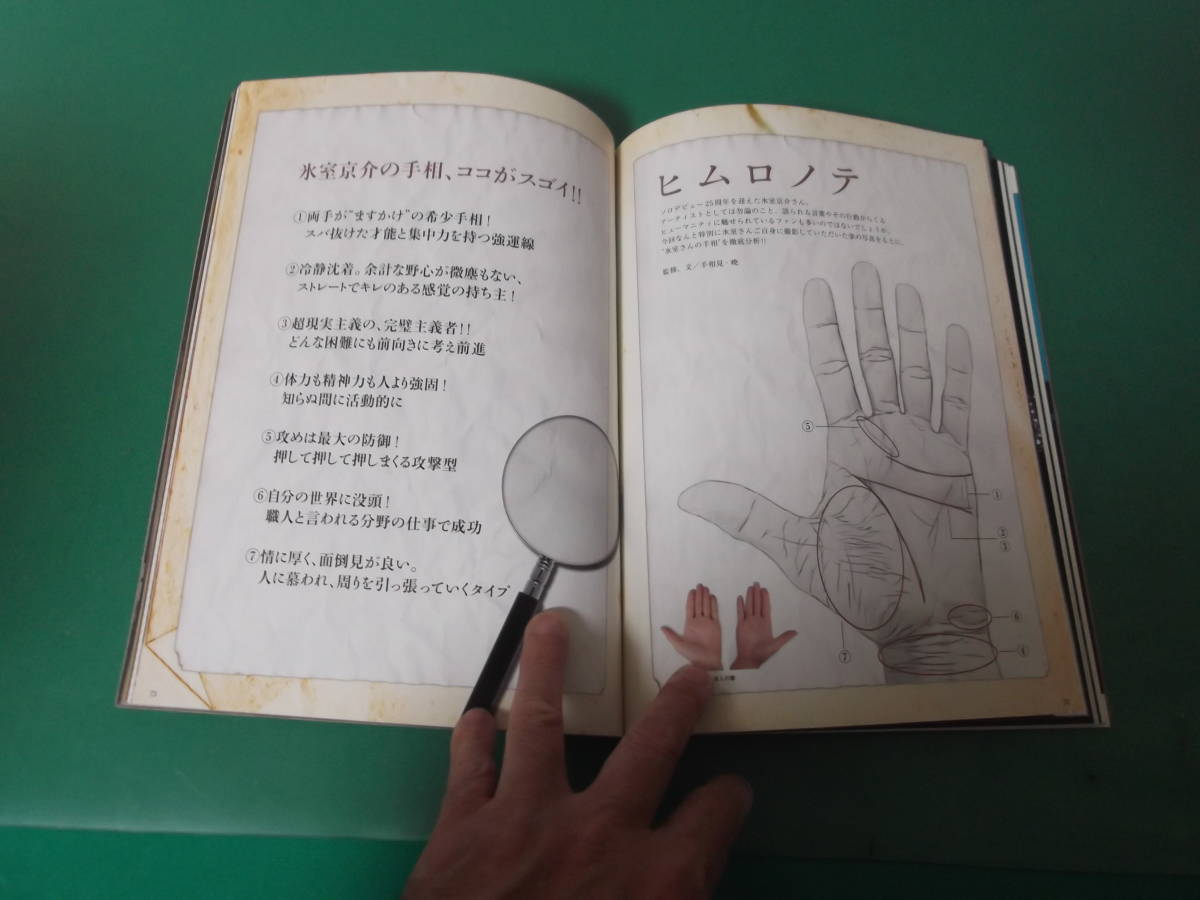 氷室京介の手相、ココがスゴイ!!
①両手が"ますかけ"の希少手相!
ズバ抜けた才能と集中力を持つ強運線
②冷静沈着。余計な野心が微塵もない、
ストレートでキレのある感覚の持ち主!
③超現実主義の、完璧主義者!!
どんな困難にも前向きに考え前進
④体力も精神力も人より強固!
知らぬ間に活動的に
⑤攻めは最大の防御!
押して押して押しまくる攻撃型
⑥自分の世界に没頭!
職人と言われる分野の仕事で成功
⑦情に厚く、面倒見が良い。
人に慕われ、周りを引っ張っていくタイプ
ヒムロノテ
ソロデビュー25周年を迎えた氷室京介さん。
アーティストとしては勿論のこと、語られる言葉やその行動からくる
ヒューマニティに魅せられているファンも多いのではないでしょうか。
今回なんと特別に氷室さんご自身に撮影していただいた掌の写真をもとに、
"氷室さんの手相"を徹底分析!!
監修、文/手相見・暁
⑤
①
②
③
⑥
④
⑦